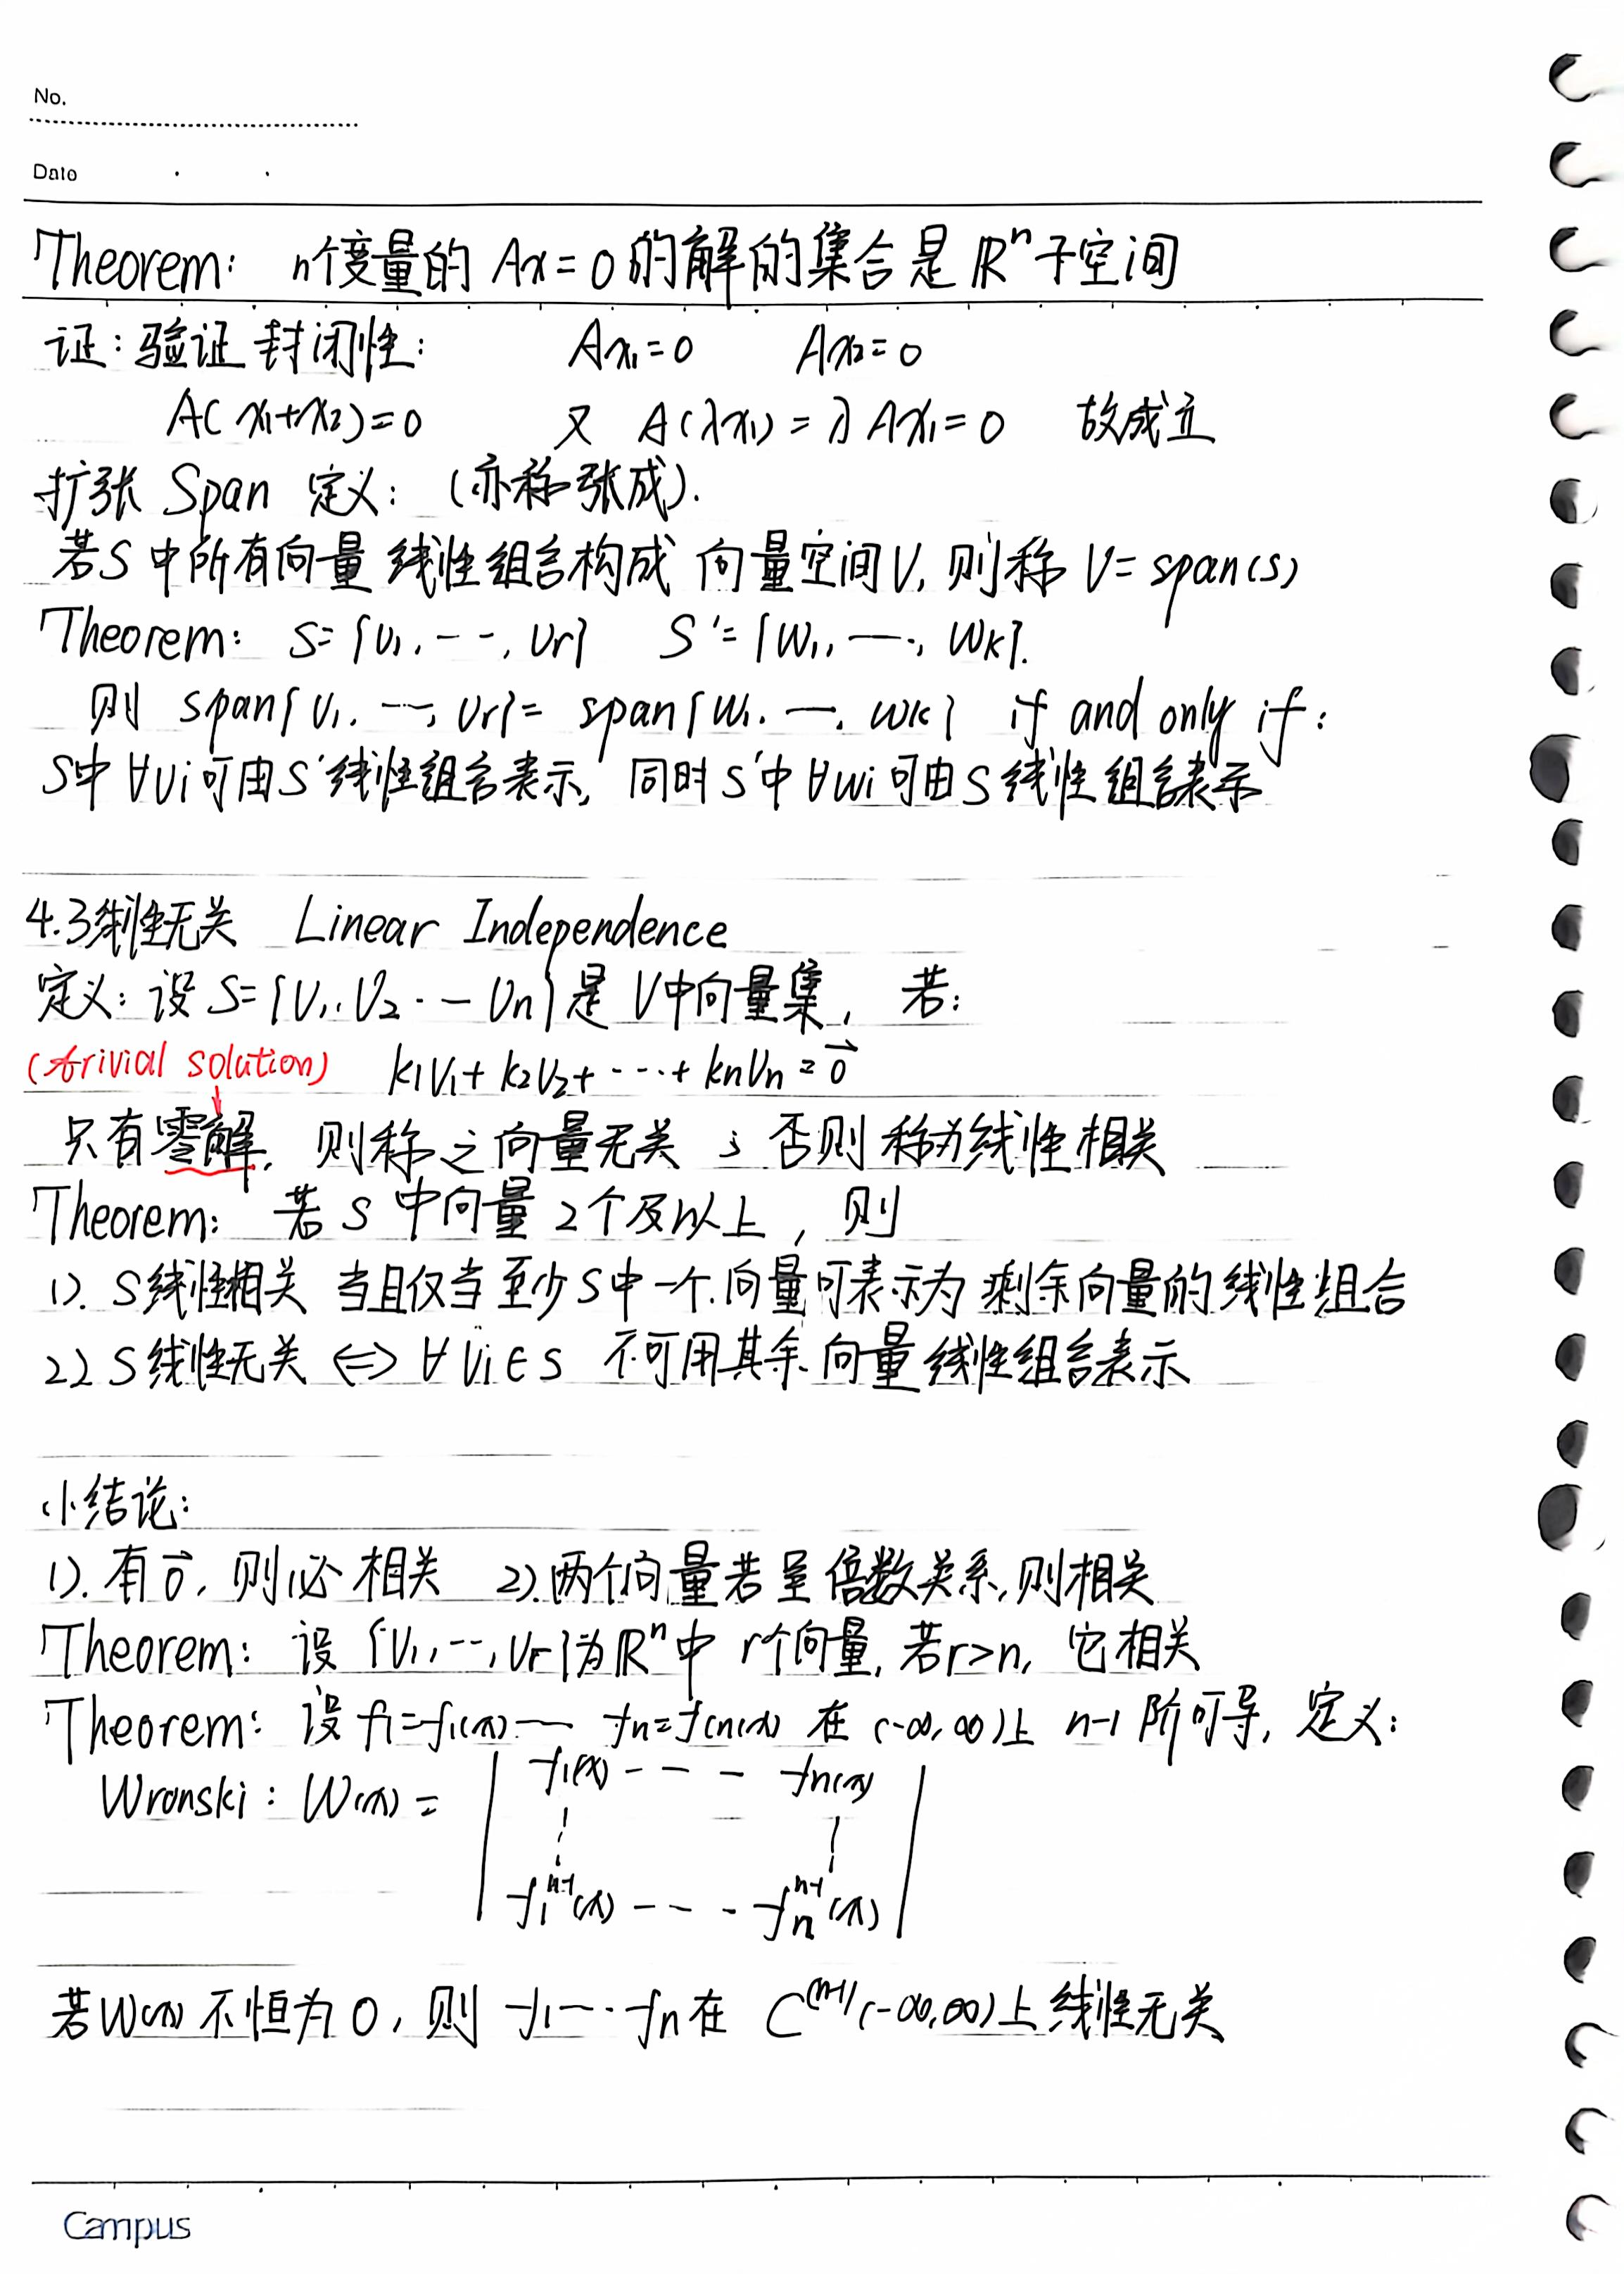 No.
Date
Theorem: n个变量的 Ax=0 的解的集合是 ℝⁿ子空间
证:验证封闭性: Ax₁=0 Ax₂=0
A(x₁+x₂)=0 又 A(λx₁)=λAx₁=0 故成立
扩张 Span 定义:(亦称张成).
若S中所有向量线性组合构成 向量空间V,则称 V=span(S)
Theorem: S={v₁,--,vᵣ} S'={w₁,—,wₖ}.
则 span{v₁,—,vᵣ}=span{w₁,—,wₖ} if and only if:
S中∀vᵢ可由S'线性组合表示, 同时S'中∀wᵢ可由S线性组合表示
4.3线性无关 Linear Independence
定义:设 S={v₁,v₂·—vₙ}是V中向量集, 若:
(trivial solution) k₁v₁+k₂v₂+···+kₙvₙ=0⃗
只有零解, 则称之向量无关;否则称为线性相关
Theorem: 若S中向量2个及以上,则
1). S线性相关 当且仅当至少S中一个向量可表示为剩余向量的线性组合
2) S线性无关 ⇔ ∀vᵢ∈S 不可用其余向量线性组合表示
小结论:
1). 有0⃗, 则必相关 2).两个向量若呈倍数关系,则相关
Theorem: 设{v₁,--,vᵣ}为ℝⁿ中 r个向量,若r>n, 它相关
Theorem: 设f₁=f₁(x)— fₙ=fₙ(x) 在(-∞,∞)上 n-1阶可导, 定义:
Wronski: W(x)= | f₁(x) - - - fₙ(x) |
| f₁ⁿ⁻¹(x) - - - fₙⁿ⁻¹(x) |
若W(x)不恒为0,则 f₁—·fₙ在 C⁽ⁿ⁻¹⁾(-∞,∞)上线性无关
Campus